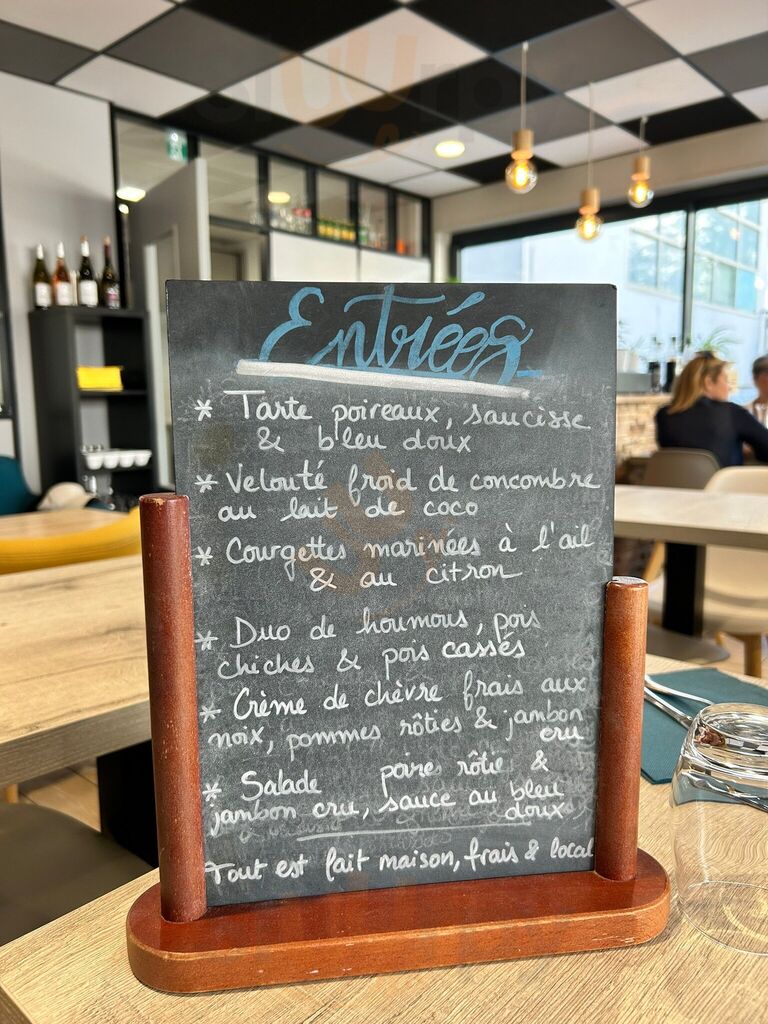 Entrées
* Tarte poireaux, saucisse
& bleu doux
* Velouté froid de concombre
au lait de coco
* Courgettes marinées à l'ail
& au citron
* Duo de houmous, pois
chiches & pois cassés
* Crème de chèvre frais aux
noix, pommes rôties & jambon
cru
* Salade poires rôtie &
jambon cru, sauce au bleu
doux
Tout est fait maison, frais & local